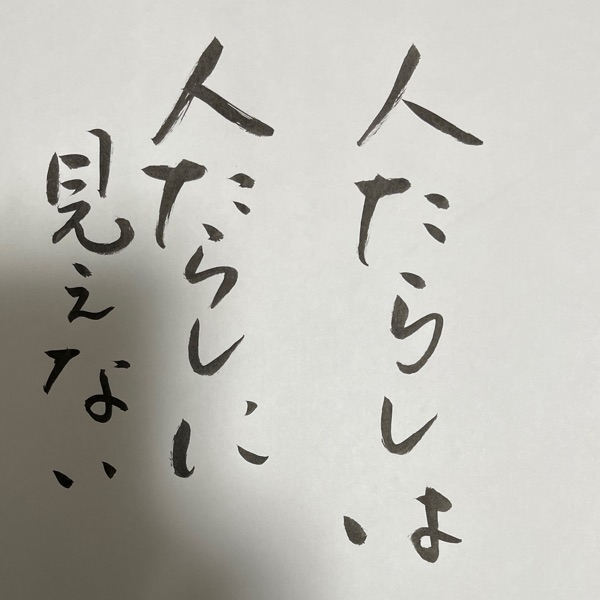 人たらしは
人だらしに
見えない